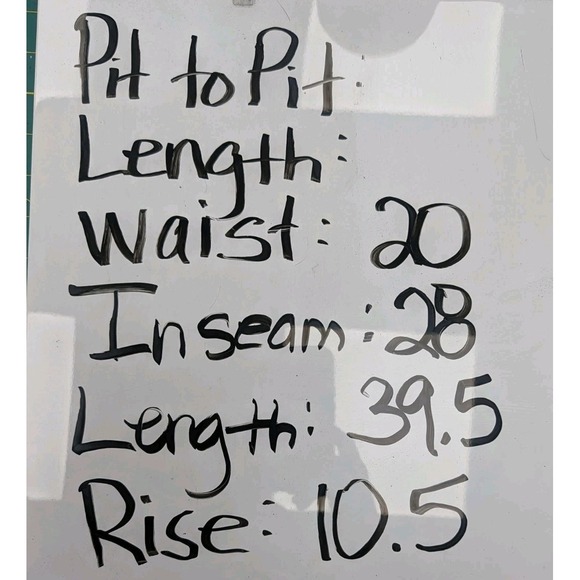 Pit to Pit:
Length:
Waist: 20
Inseam: 28
Length: 39.5
Rise: 10.5